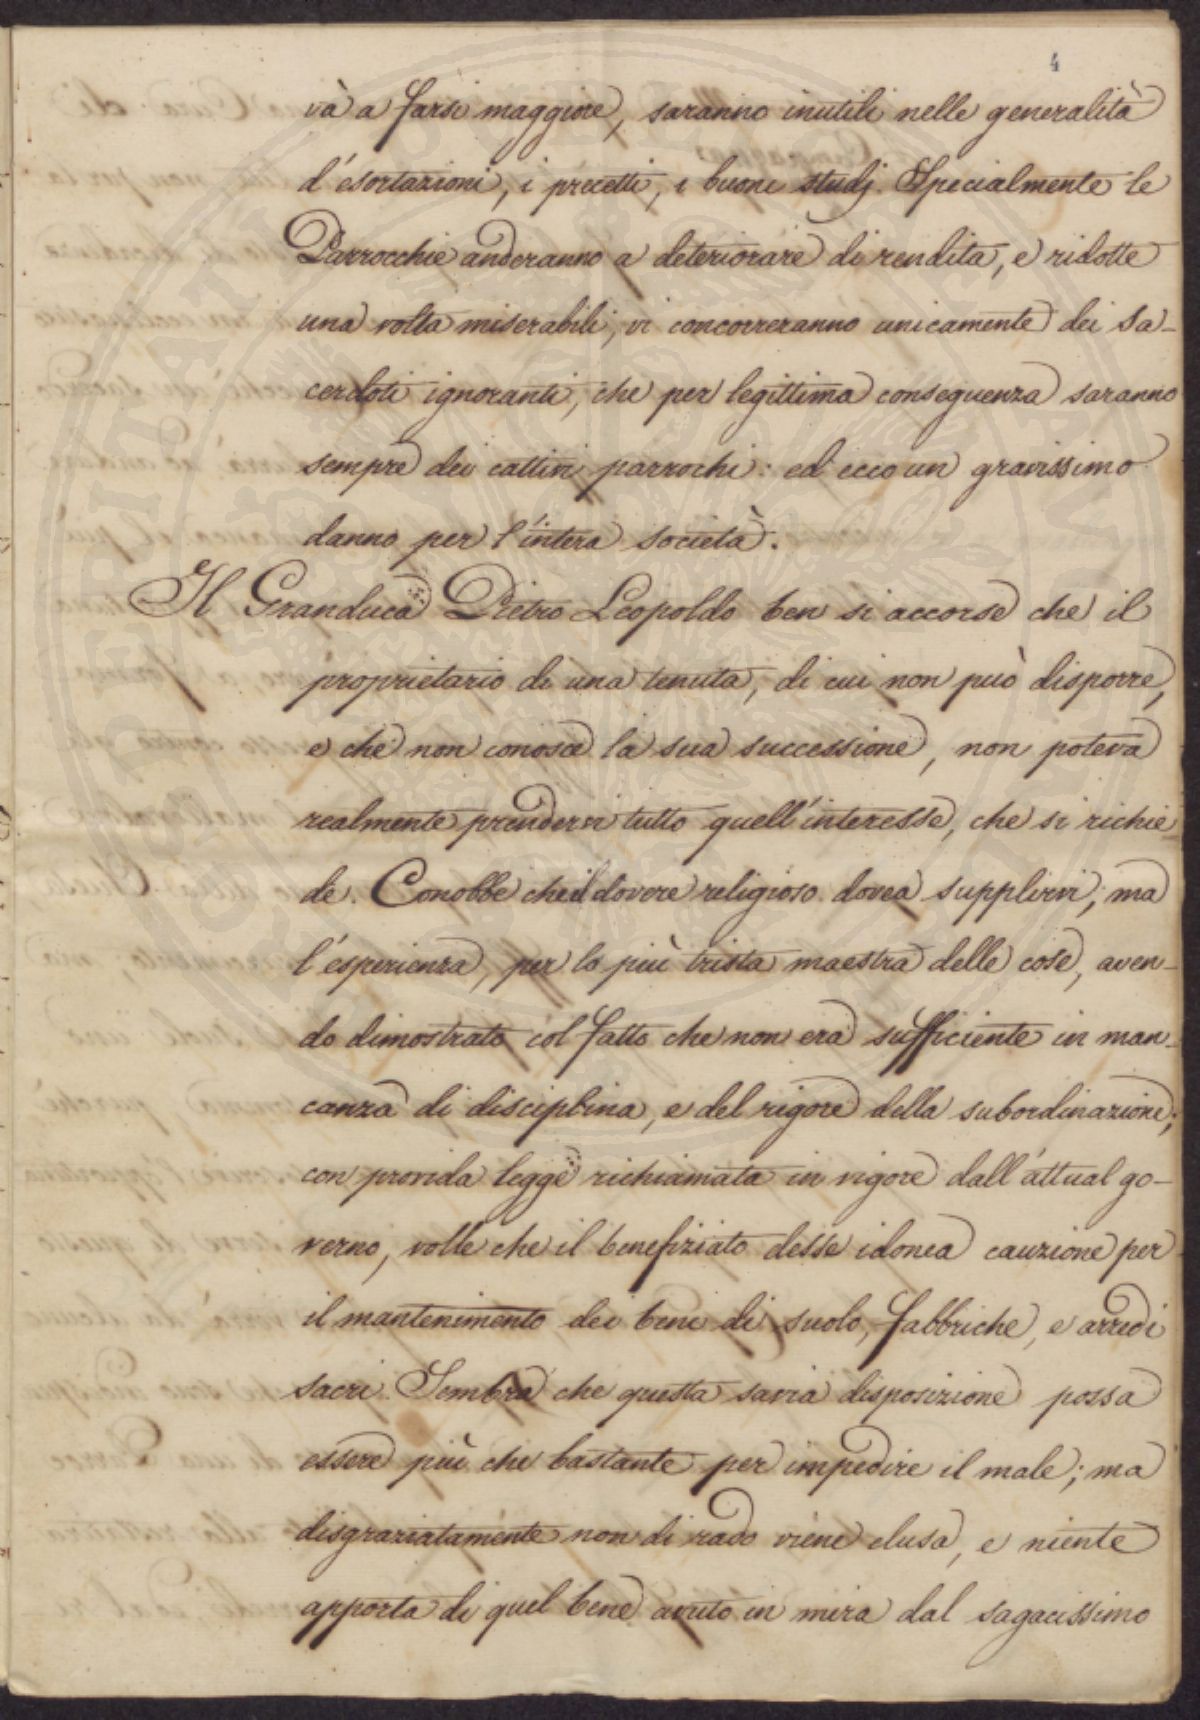 4
và a farsi maggiore, saranno inutili nelle generalità
l'esortazioni, i precetti, i buoni studj. Specialmente le
Parrocchie anderanno a deteriorare di rendita, e ridotte
una volta miserabili, vi concorreranno unicamente dei sa-
cerdoti ignoranti, che per legittima conseguenza saranno
sempre dei cattivi parrochi: ed ecco un gravissimo
danno per l'intera società.
Il Granduca Pietro Leopoldo ben si accorse che il
proprietario di una tenuta, di cui non può disporre,
e che non conosce la sua successione, non poteva
realmente prendervi tutto quell'interesse, che si richie
de. Conobbe che il dovere religioso dovea supplirvi; ma
l'esperienza, per lo più trista maestra delle cose, aven-
do dimostrato col fatto che non era sufficiente in man-
canza di disciplina, e del rigore della subordinazione;
con provida legge richiamata in vigore dall'attual go-
verno, volle che il benefiziato desse idonea cauzione per
il mantenimento dei beni di suolo, fabbriche, e arredi
sacri. Sembra che questa savia disposizione possa
essere più che bastante per impedire il male; ma
disgraziatamente non di rado viene elusa, e niente
apporta di quel bene avuto in mira dal sagacissimo